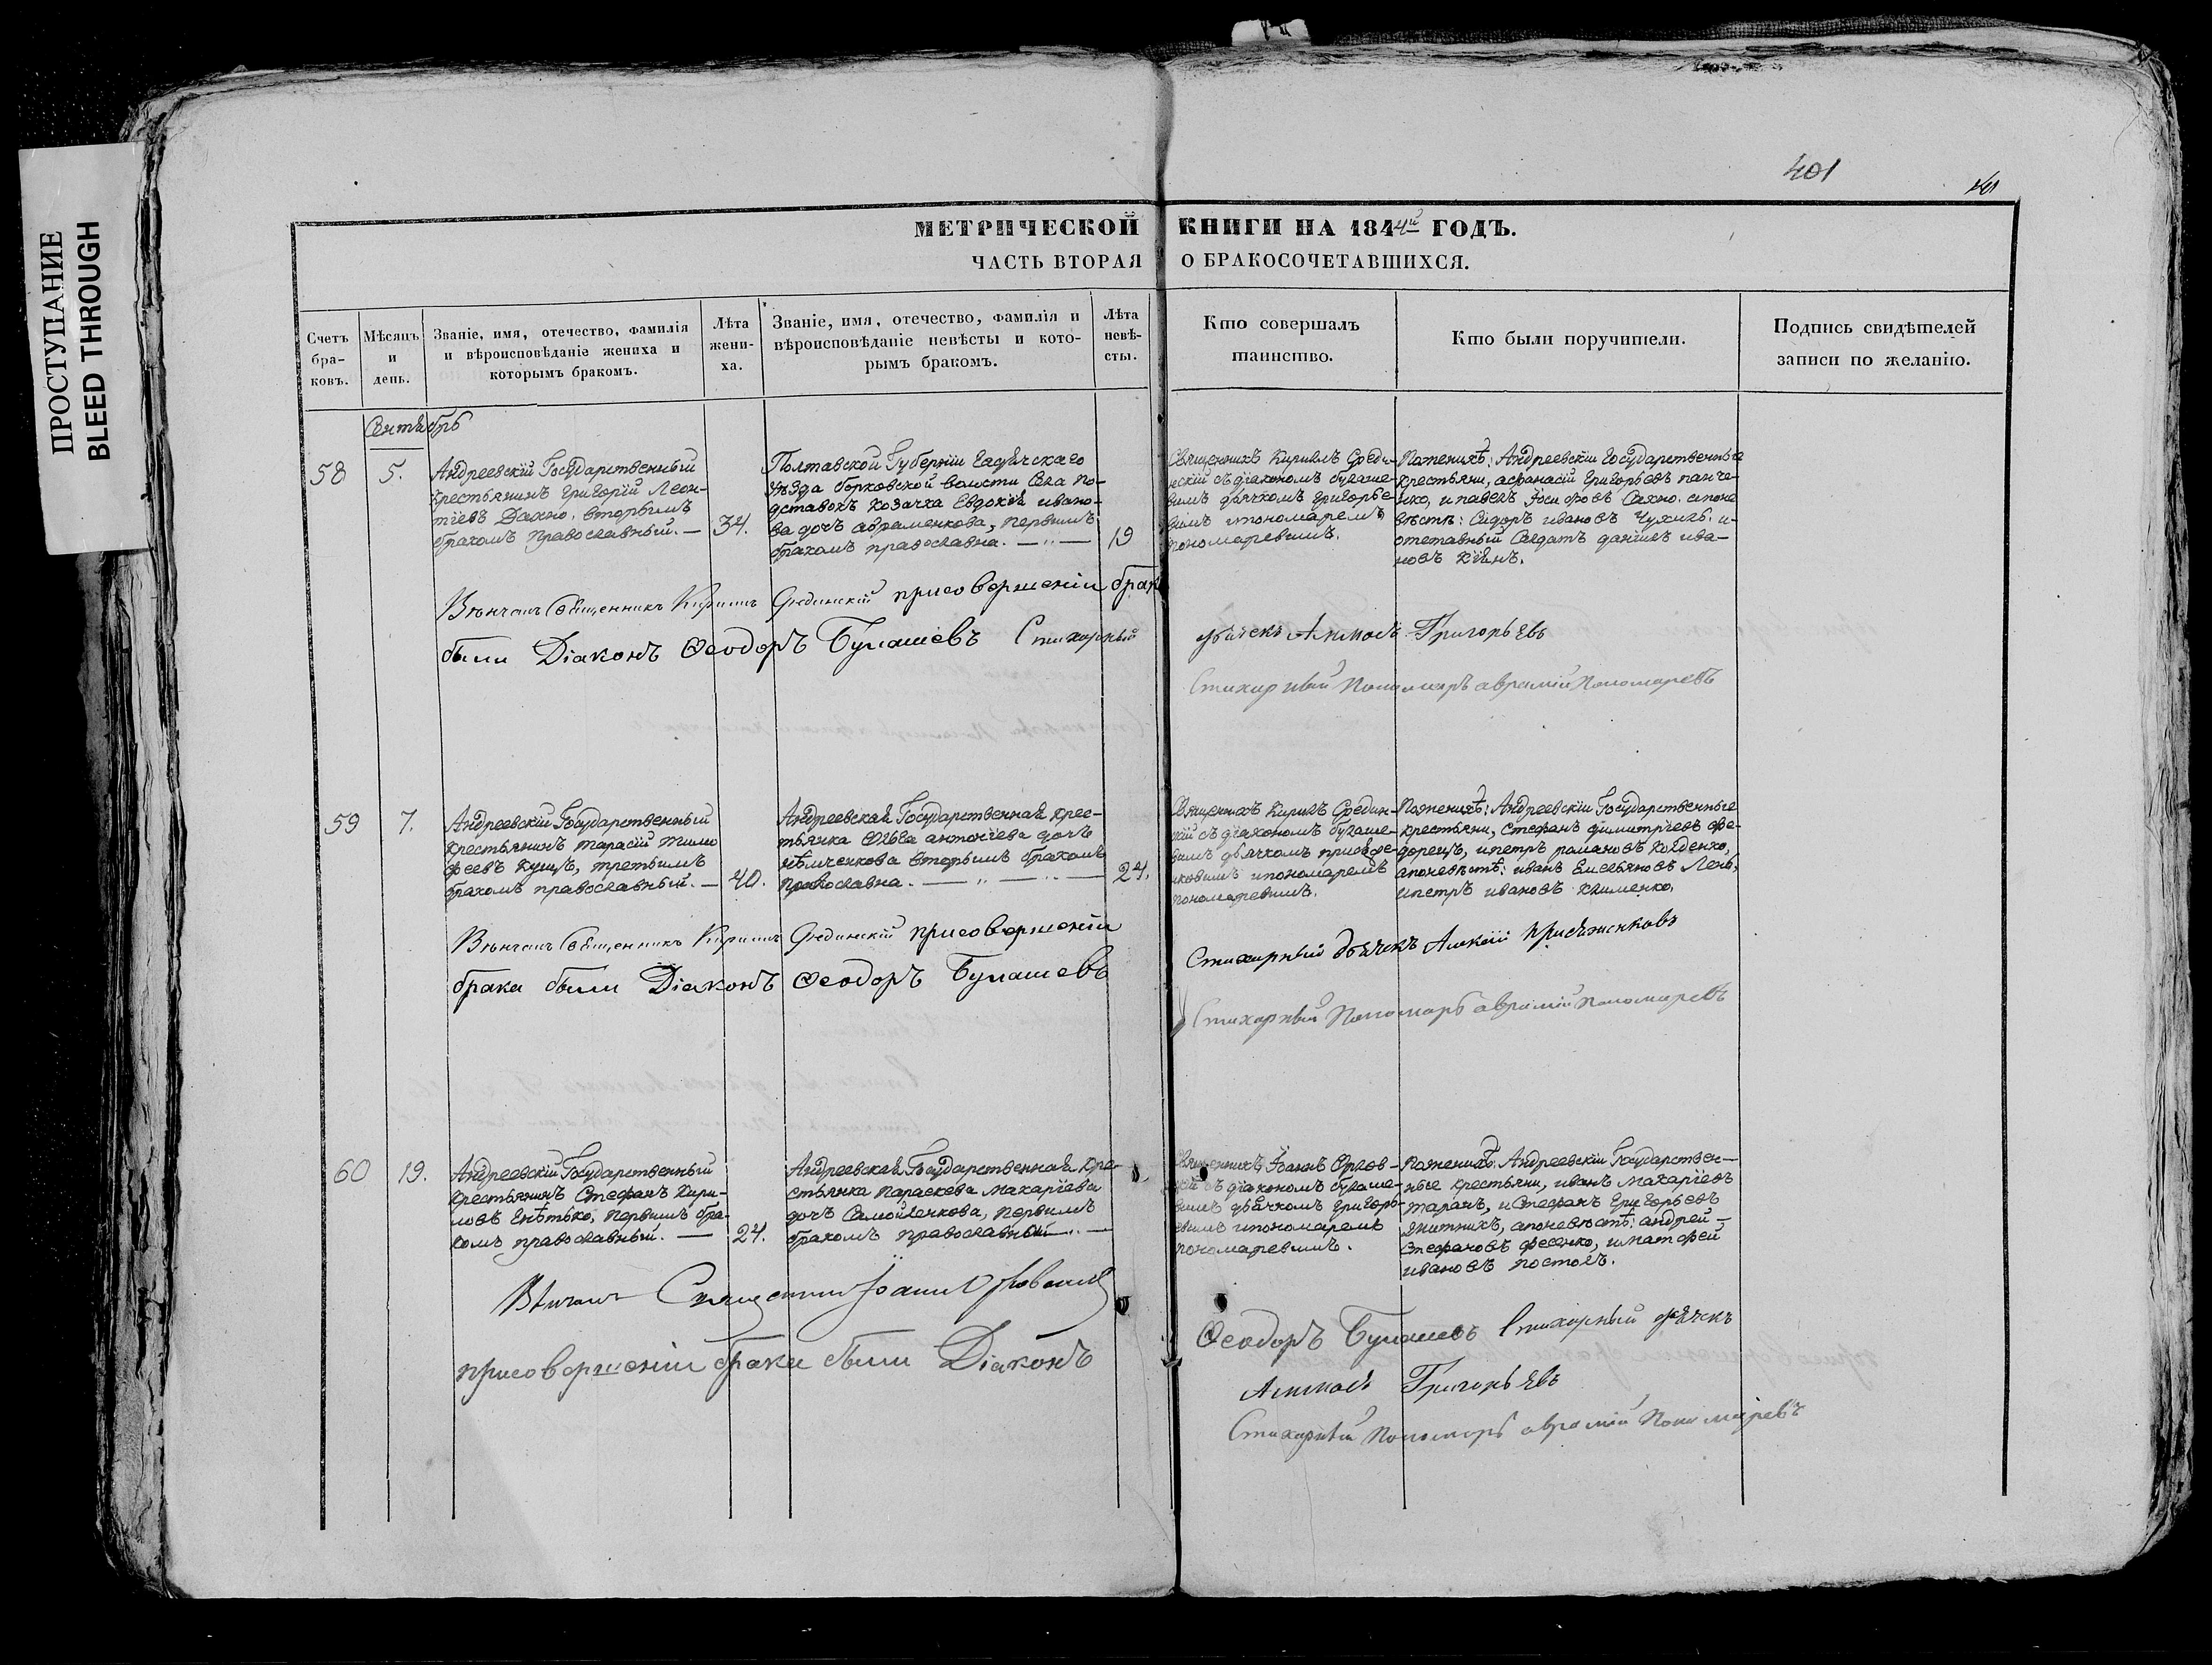 ПРОСТУПАНИЕ
BLEED THROUGH
401
МЕТРИЧЕСКОЙ КНИГИ НА 1844й ГОДЪ.
ЧАСТЬ ВТОРАЯ О БРАКОСОЧЕТАВШИХСЯ.
Счетъ браковъ.
Мѣсяцъ и день.
Званіе, имя, отечество, фамилія
и вѣроисповѣданіе жениха и
которымъ бракомъ.
Лѣта
жени-
ха.
Званіе, имя, отечество, фамилія и
вѣроисповѣданіе невѣсты и кото-
рымъ бракомъ.
Лѣта
невѣ-
сты.
Кто совершалъ
таинство.
Кто были поручители.
Подпись свидѣтелей
записи по желанію.
Сентябрь
58
5.
Андреевскій Государственный
крестьянинъ Григорій Леон-
тіевъ Дахно, вторымъ
бракомъ православный. —
34.
Полтавской Губерніи Гадячскаго
уѣзда борковской волости Села По-
дставокъ козачка Евдокія ивано-
ва дочь авраменкова, первымъ
бракомъ православна. — „ —
19
Священникъ Кирилъ Среди-
нскій съ діакономъ булаше-
вымъ дьячкомъ григорье-
вымъ ипономаремъ
пономаревымъ.
Поженихѣ: Андреевскіи Государственные
крестьяни, афанасій Григорьевъ панче-
нко, и павелъ Іосифовъ Сахно. апоне
вѣстѣ: Сидоръ ивановъ Чухиль. и-
отставный Солдатъ данилъ ива-
новъ Кіянъ.
Вѣнчалъ Священникъ Кирилъ Срединскій присовершеніи брака
были Діаконъ Ѳеодоръ Булашевъ Стихарный
дьячекъ Григорьевъ
Стихарный Пономарь аврамій Пономаревъ
59
7.
Андреевскій Государственный
крестьянинъ тарасій тимо
феевъ Куцъ, третьимъ
бракомъ православный. —
40.
Андреевская Государственная крес-
тьянка Ольва антоніева дочь
нѣмченкова вторымъ бракомъ
православна. — „ — „ —
24.
Священникъ Кирилъ Средин-
скій съ діакономъ булаше-
вымъ дьячкомъ присяже-
нковымъ ипономаремъ
пономаревымъ.
Поженихѣ: Андреевскіи Государственные
крестьяни, Стефанъ димитріевъ фе-
дорецъ, ипетръ романовъ Коденко,
апоневѣстѣ: иванъ Емельяновъ Лень,
ипетръ ивановъ клименко.
Вѣнчалъ Священникъ Кирилъ Срединскій присовершеніи
брака были Діаконъ Ѳеодоръ Булашевъ
Стихарный дьячекъ Алексій Присяженковъ
Стихарный Пономарь аврамій Пономаревъ
60
19.
Андреевскій Государственный
крестьянинъ Стефанъ Кири-
ловъ Енѣтько, первымъ бра-
комъ православный. —
24.
Андреевская Государственная кре-
стьянка параскева макаріева
дочь Самойленкова, первымъ
бракомъ православный „ —
Священникъ Іоаннъ Орлов-
скій съ діакономъ булаше-
вымъ дьячкомъ григорь-
евымъ ипономаремъ
пономаревымъ.
Поженихѣ: Андреевскіи Государствен-
ные крестьяни, иванъ макаріевъ
таранъ, и Стефанъ Григорьевъ
апоневѣстѣ: андрей —
Стефановъ фесенко, иматфей
ивановъ постолъ.
Вѣнчалъ Священникъ Іоаннъ Орловскій
присовершеніи брака были Діаконъ
Ѳеодоръ Булашевъ Стихарный дьячекъ
Григорьевъ
Стихарный Пономарь аврамій Пономаревъ